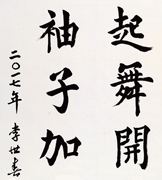 起舞開
袖子加
二〇一七年 李世喜